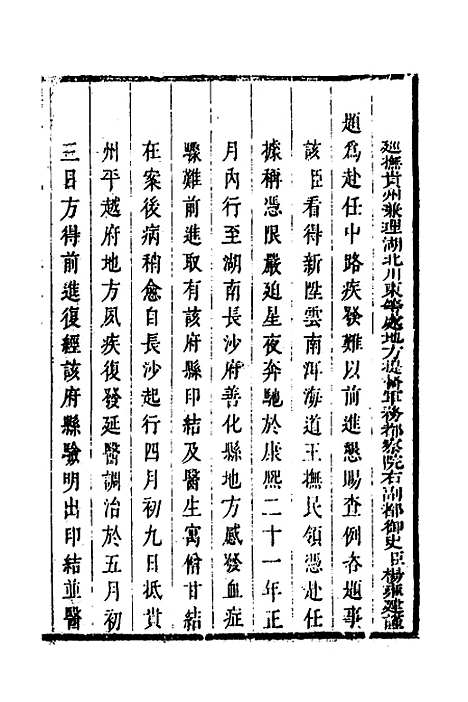 巡撫貴州兼理湖北川東等處地方提督軍務都察院右副都御史臣楊雍建謹
題爲赴任中路疾發難以前進懇賜查例咨題事
該臣看得新陞雲南洱海道王撫民領憑赴任
據稱憑限嚴廹星夜奔馳於康熙二十一年正
月內行至湖南長沙府善化縣地方感發血症
驟難前進取有該府縣印結及醫生寓僧甘結
在案後病稍愈自長沙起行四月初九日抵貴
州平越府地方夙疾復發延醫調治於五月初
三日方得前進復經該府縣驗明出印結並醫